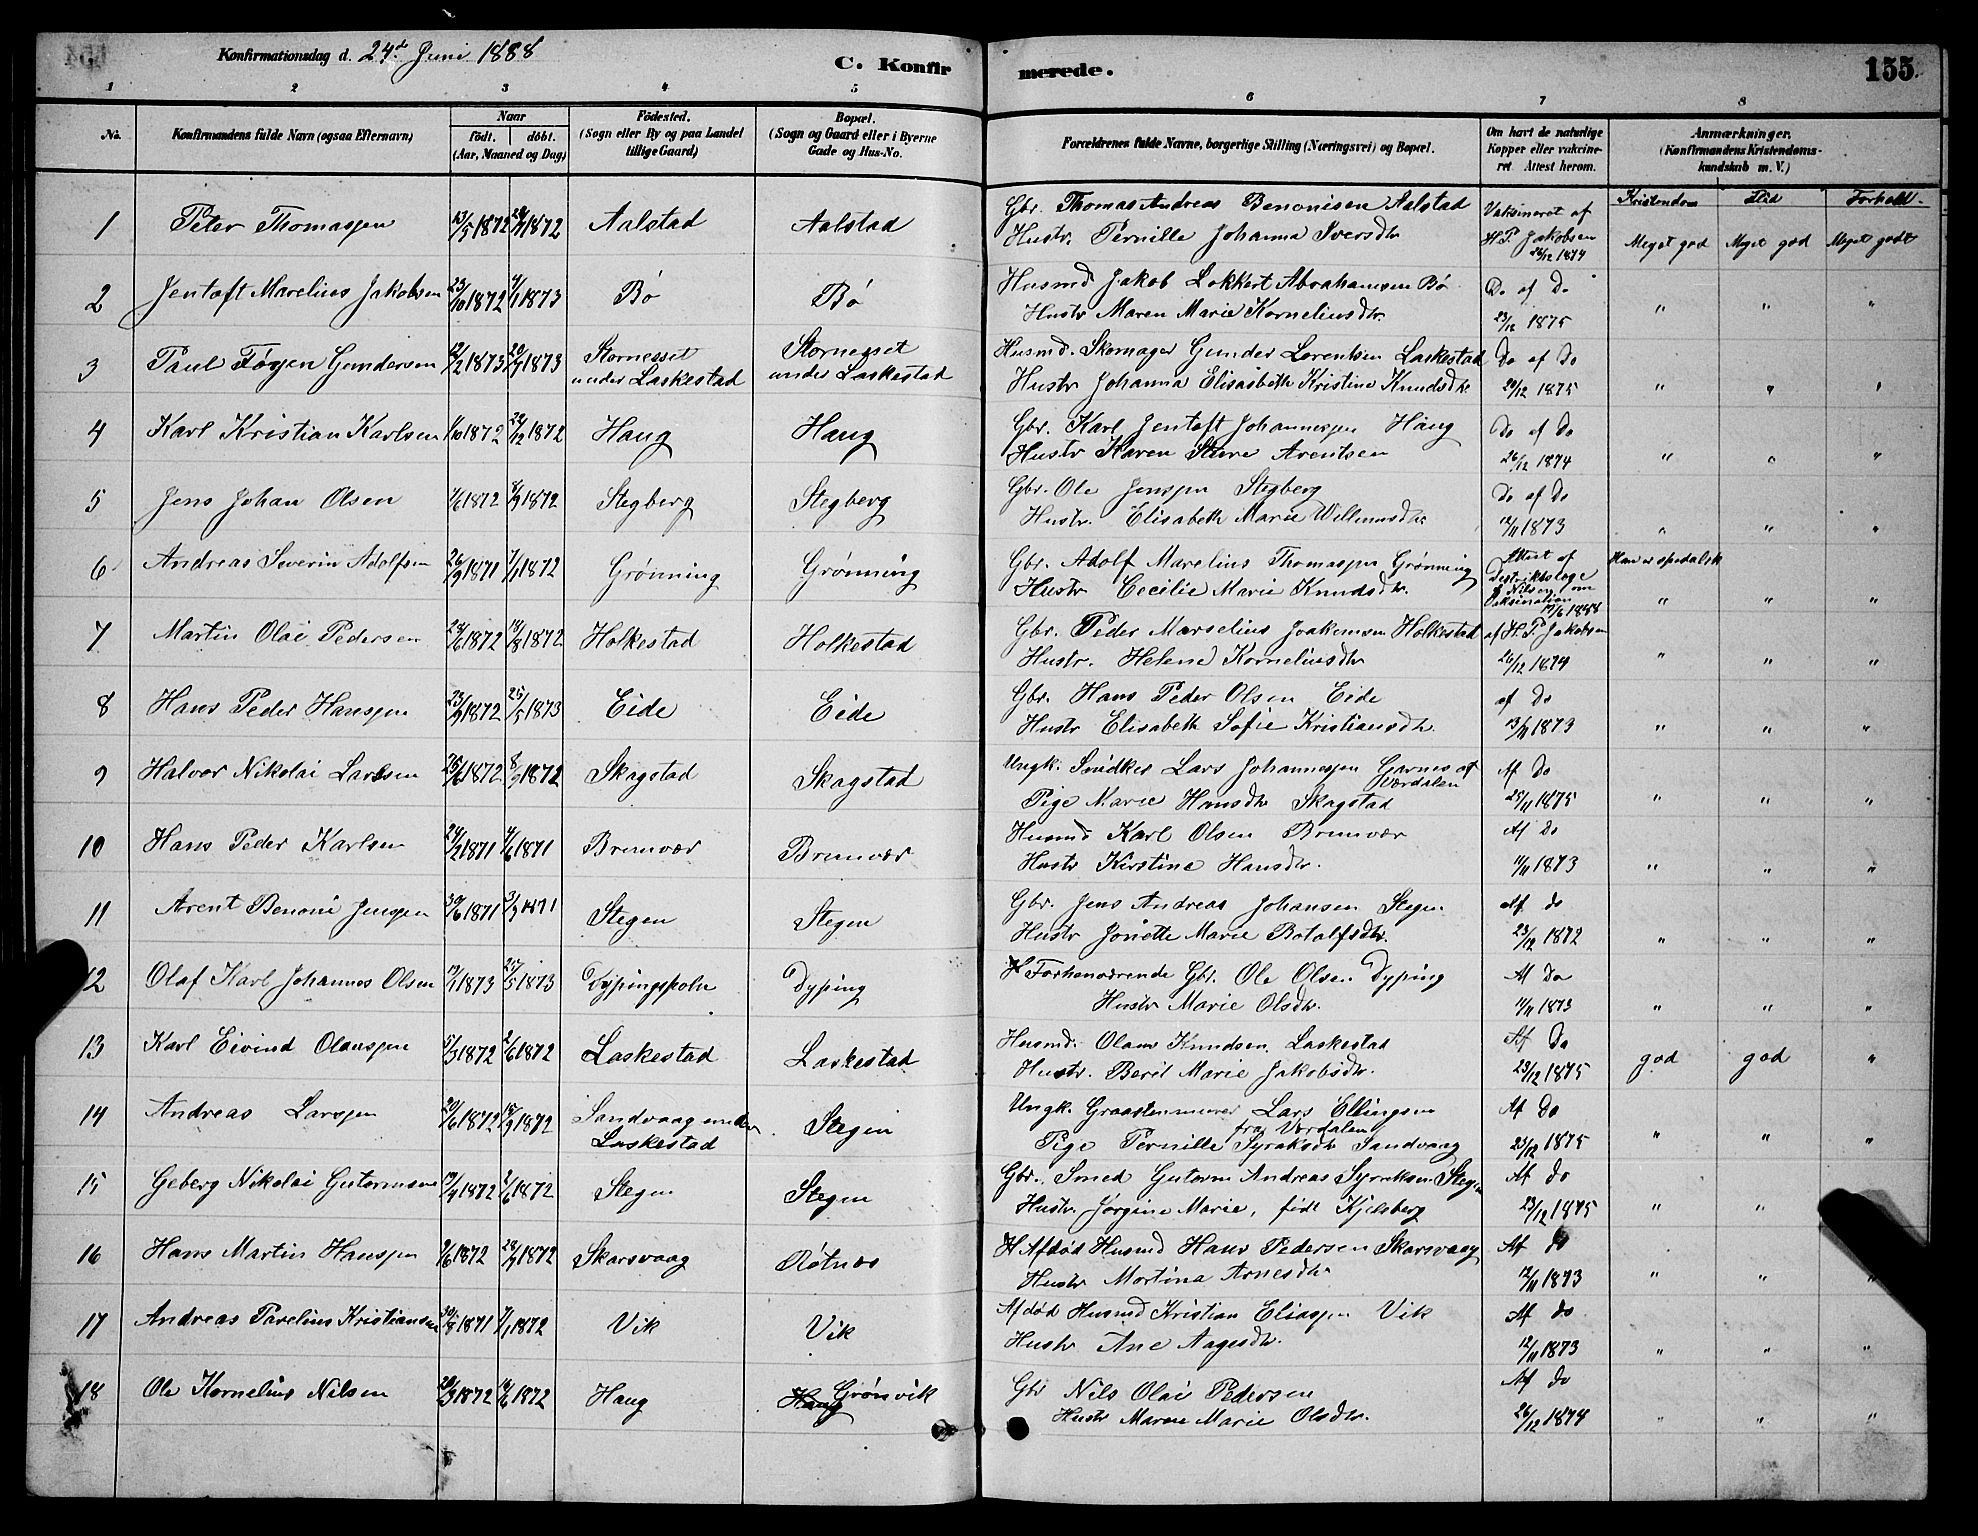 Konfirmationsdag d. 24de Juni 1888
C. Konfirmerede.
155.
1 2 3 4 5 6 7 8
No.
Konfirmandens fulde Navn (ogsaa Efternavn)
Naar
födt. döbt.
(Aar, Maaned og Dag)
Födested.
(Sogn eller By og paa Landet
tillige Gaard)
Bopæl.
(Sogn og Gaard eller i Byerne
Gade og Hus-No.
Forældrenes fulde Navne, borgerlige Stilling (Næringsvei) og Bopæl.
Om havt de naturlige
Kopper eller vakcine-
ret. Attest herom.
Anmærkninger.
(Konfirmandens Kristendoms-
kundskab m. V.)
Kristendom Flid Forhold.
1 Peter Thomassen 13/5 1872 1872 Aalstad Aalstad Gbr. Thomas Andreas Benonisen Aalstad Vaksineret af
Hustr. Pernille Johanna Iversdtr H.P. Jakobsen Meget god Meget god Meget godt
1874
2 Jentoft Marelius Jakobsen 23/10 1872 1/1 1873 Bø Bø Husmd Jakob Lokkert Abrahamsen Bø Do af Do
Hustr Maren Marie Korneliusdtr. 23/12 1875 " " "
3 Paul Føgen Gundersen 12/2 1873 1873 Stornesset Stornesset Husmd. Skomager Gunder Lorentsen Laskestad Do af Do
under Laskestad under Laskestad Hustr Johanna Elisabeth Kristine Knudsdtr. 1875 " " "
4 Karl Kristian Karlsen 1/10 1872 29/12 1872 Haug Haug Gbr. Karl Jentoft Johannessen Haug Do af Do
Hustr Karen Arentsen 26/12 1874 " " "
5 Jens Johan Olsen 1872 8/9 1872 Stegberg Stegberg Gbr. Ole Jenssen Stegberg Do af Do
Hustr. Elisabeth Marie Willumsdtr 12/11 1873 " " "
6 Andreas Severin Adolfsen 26/9 1871 7/1 1872 Grønning Grønning Gbr. Adolf Marelius Thomassen Grønning Attest af Han er spedalsk
Hustr. Cecilie Marie Knudsdtr. Distriktslæge
Nilsen om
Vaksination " " "
19/6 1888
7 Martin Olai Pedersen 28/6 1872 18/8 1872 Holkestad Holkestad Gbr. Peder Marselius Joakimsen Holkestad af H.P. Jakobsen
Hustr. Helene Korneliusdtr 26/12 1874 " " "
8 Hans Peder Hanssen 23/9 1872 25/5 1873 Eide Eide Gbr. Hans Peder Olsen Eide af Do
Hustr Elisabeth Sofie Kristiansdtr. 13/11 1873 " " "
9 Halvor Nikolai Larssen 1872 8/9 1872 Skagstad Skagstad Ungk. Snidker Lars Johannessen Garnes af Af Do
Værdalen
Pige Marie Hansdtr Skagstad 25/11 1875 " " "
10 Hans Peder Karlsen 24/2 1871 4/6 1871 Brunvær Brunvær Husmd Karl Olsen Brunvær Af Do
Hustr Kirstine Hansdtr. 11/11 1873 " " "
11 Arent Benoni Jenssen 30/6 1871 3/9 1871 Stegen Stegen Gbr. Jens Andreas Johansen Stegen Af do
Hustr Jonette Marie Botolfsdtr. 23/12 1872 " " "
12 Olaf Karl Johannes Olsen 1873 25/5 1873 Dypingspoln Dyping Forhenværende Gbr. Ole Olsen Dyping Af Do
Hustr Marie Olsdtr. 11/11 1873 " " "
13 Karl Eivind Olaussen 1872 2/6 1872 Laskestad Laskestad Husmd. Olaus Knudsen Laskestad Af Do
Hustr. Beril Marie Jakobsdtr. 23/12 1875 god god "
14 Andreas Larssen 20/6 1872 1872 Sandvaag under Stegen Ungk. Graastensmurer Lars Ellingsen Af Do
Laskestad fra Værdalen
Pige Pernille Syraksdtr Sandvaag 23/12 1875 " " "
15 Geberg Nikolai Gutormsen 1872 2/6 1872 Stegen Stegen Gbr. Smed Gutorm Andreas Syraksen Stegen Af do
Hustr. Jørgine Marie, født Kjelsberg 23/12 1875 " "
16 Hans Martin Hanssen 1872 1872 Skarsvaag Røtnes Afdød Husmd Hans Pedersen Skarsvaag Af do
Hustr Martina Arnesdtr 12/11 1873 " " "
17 Andreas Parelius Kristiansen 30/8 1871 7/1 1872 Vik Vik Afdød Husmd Kristian Eliassen Vik Af do
Hustr Ane Aagesdtr. 12/11 1873 " " "
18 Ole Kornelius Nilsen 1872 1872 Haug Haug Grønvik Gbr Nils Olai Pedersen Af do
Hustr Maren Marie Olsdtr. 26/12 1874 " " "